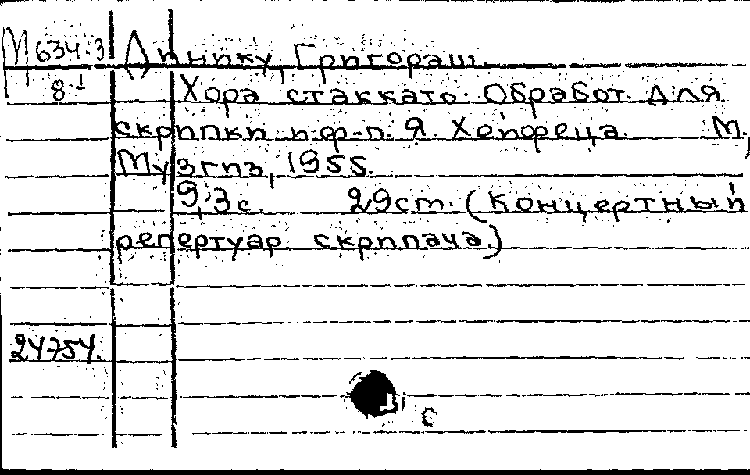 М 634.3 Диныку, Григораш.
8-1 Хора стаккато. Обработ. для
скрипки и ф-п. Я. Хейфеца. М,
Музгиз, 1955.
9,3 с. 29 ст. (концертный
репертуар скрипача.)
24754.
С